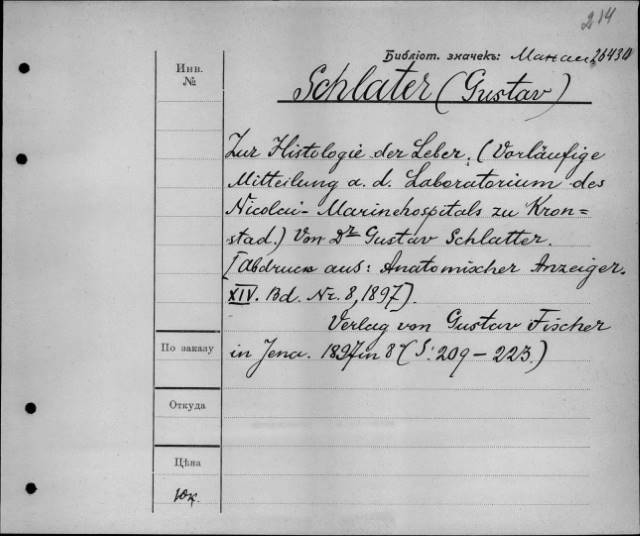 214
Библіот. значекъ: 26430
Инв.
№
Schlater (Gustav)
Zur Histologie der Leber. (Vorläufige
Mitteilung a. d. Laboratorium des
Nicolai-Marinehospitals zu Kron=
stad.) Von Dr Gustav Schlatter.
[Abdruck aus: Anatomischer Anzeiger.
XIV. Bd. Nr. 8, 1897].
Verlag von Gustav Fischer
По заказу
in Jena. 1897 in 8° (S. 209–223.)
Откуда
Цѣна